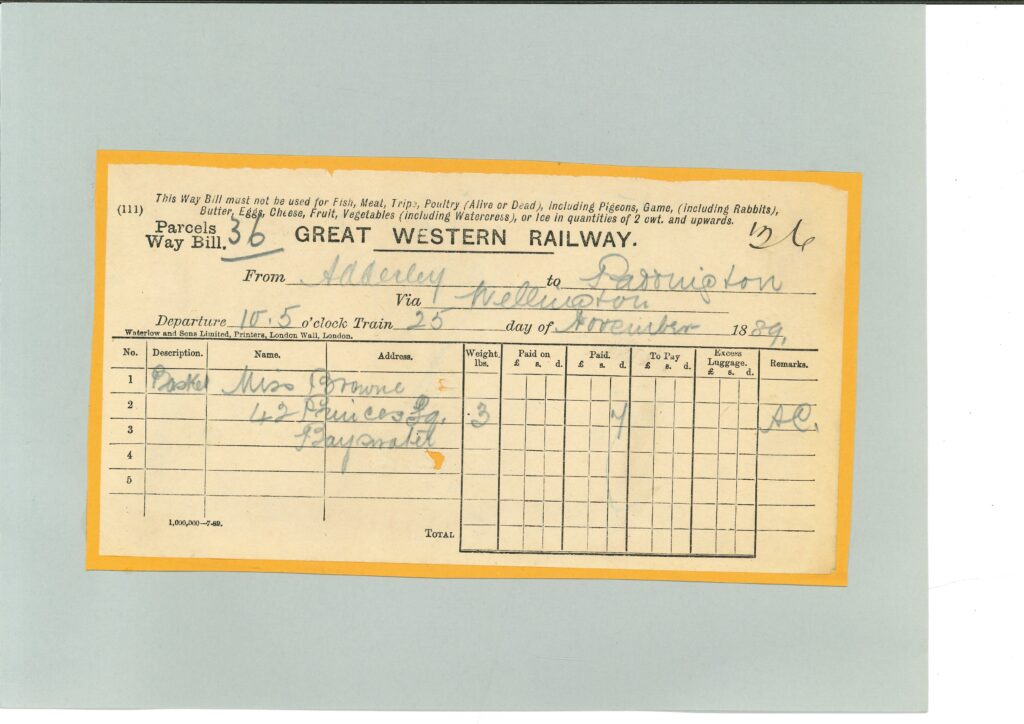 This Way Bill must not be used for Fish, Meat, Tripe, Poultry (Alive or Dead), including Pigeons, Game, (including Rabbits),
(111) Butter, Eggs, Cheese, Fruit, Vegetables (including Watercress), or Ice in quantities of 2 cwt. and upwards.
Parcels
Way Bill. 36 GREAT WESTERN RAILWAY.
From Adderley to Paddington
Via Wellington
Departure 10.5 o'clock Train 25 day of November 1889.
Waterlow and Sons Limited, Printers, London Wall, London.
No. Description. Name. Address. Weight. lbs. Paid on £ s. d. Paid. £ s. d. To Pay £ s. d. Excess Luggage. £ s. d. Remarks.
1 Basket Miss Browne
2 42 Princes Sq. 3 7 A.C.
3 Bayswater
4
5
1,000,000—7-89.
TOTAL